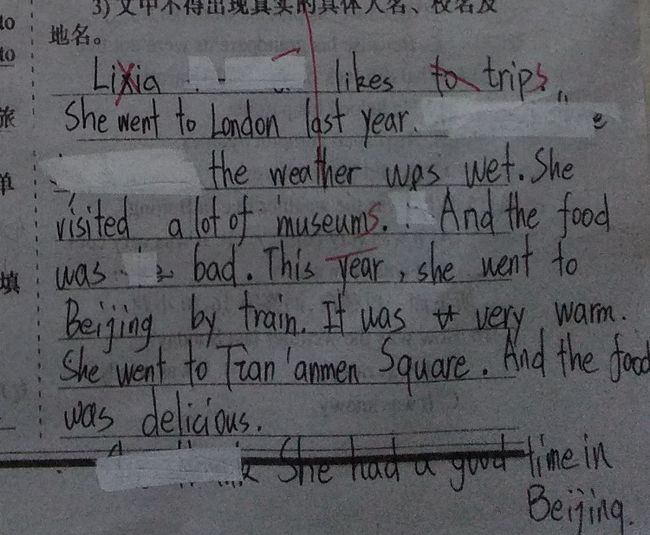 3) 文中不得出现真实的具体人名、校名及
地名。
Lixia likes to trips
She went to London last year.
the weather was wet. She
visited a lot of museums. And the food
was bad. This year, she went to
Beijing by train. It was very warm.
She went to Tian'anmen Square. And the food
was delicious.
She had a good time in
Beijing.
旅
单
填